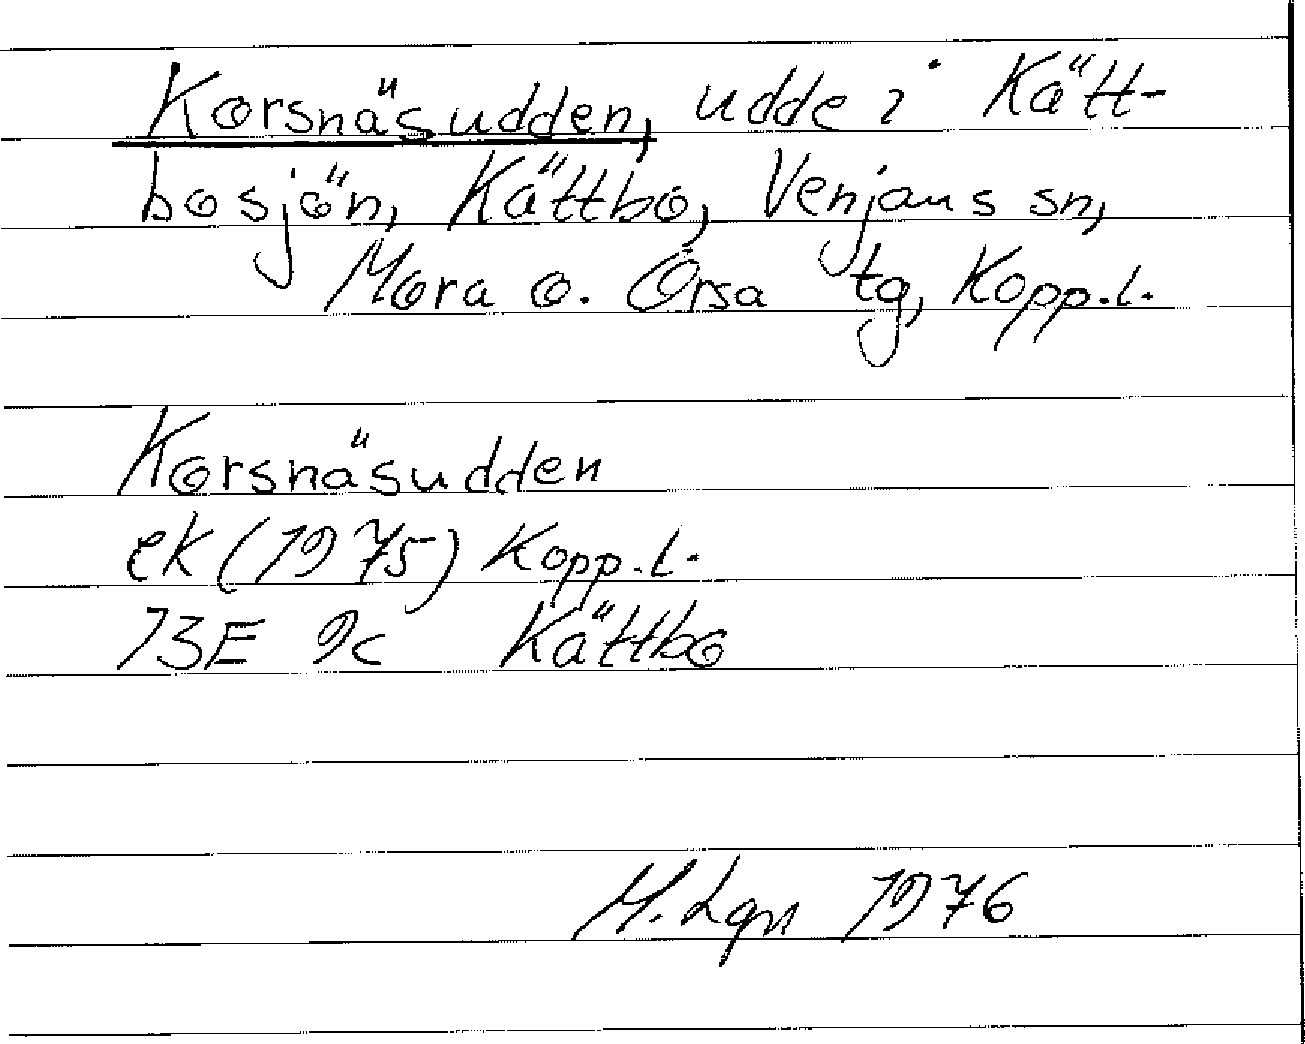 Korsnäsudden, udde i Kätt-
bosjön, Kättbo, Venjans sn,
Mora o. Orsa tg, Kopp.l.
Korsnäsudden
ek (1975) Kopp.l.
13E 9c Kättbo
H. Lgn 1976